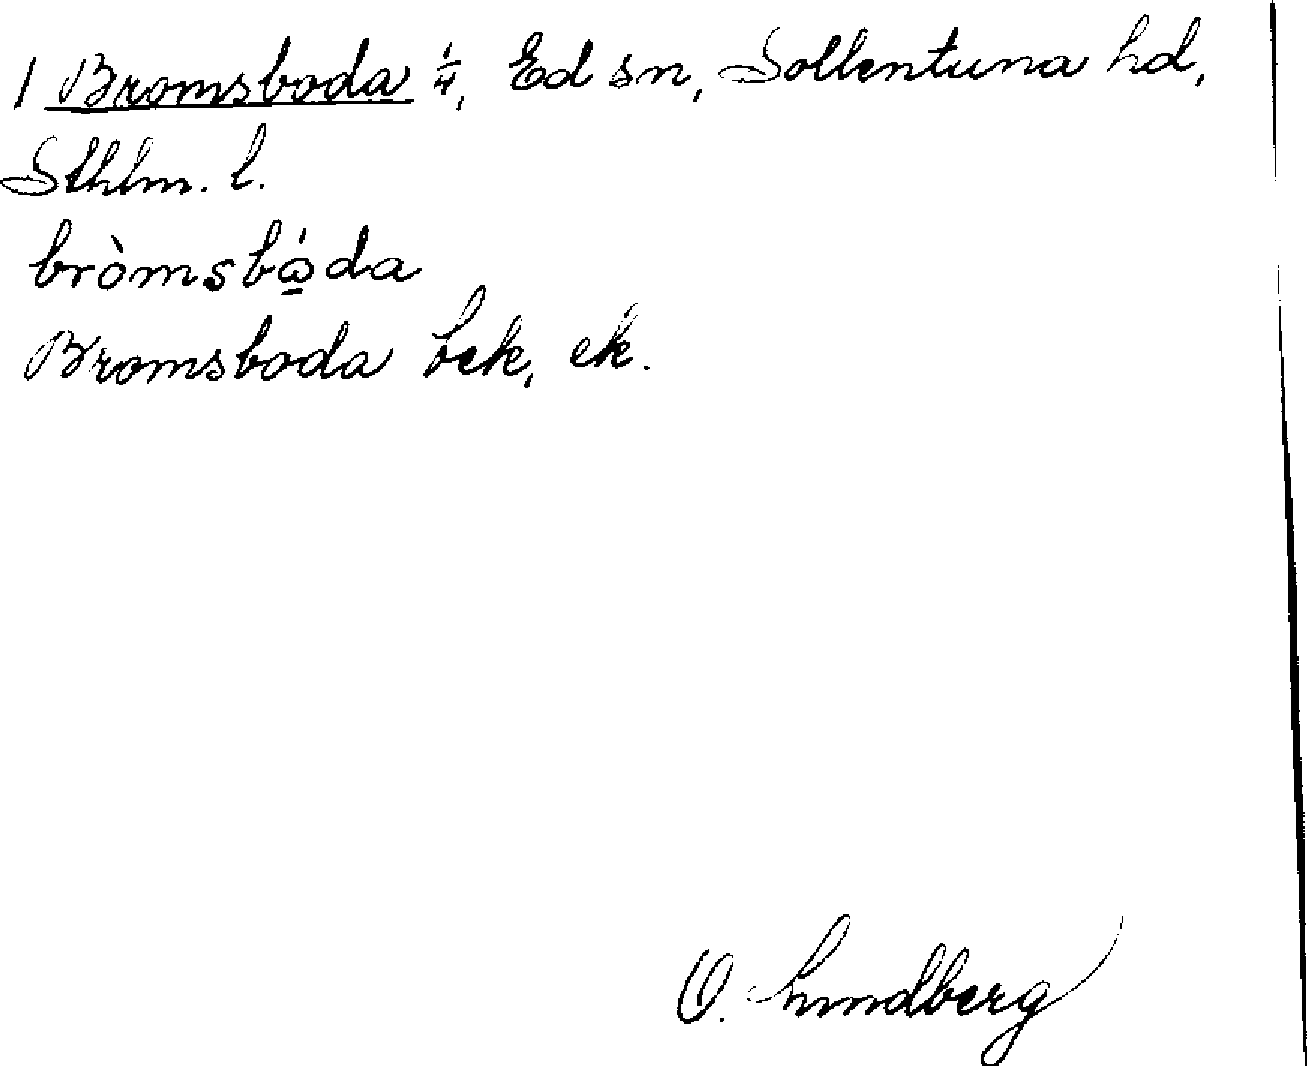 1 Bromsboda 1/4, Ed sn, Sollentuna hd,
Sthlm. l.
bròmsbó̱da
Bromsboda bek, ek.
O. Lundberg